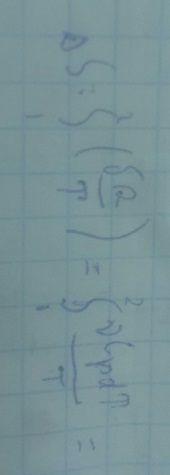 ΔS = ∫₁² (δQ/T) = ∫₁² νCpdT/T =